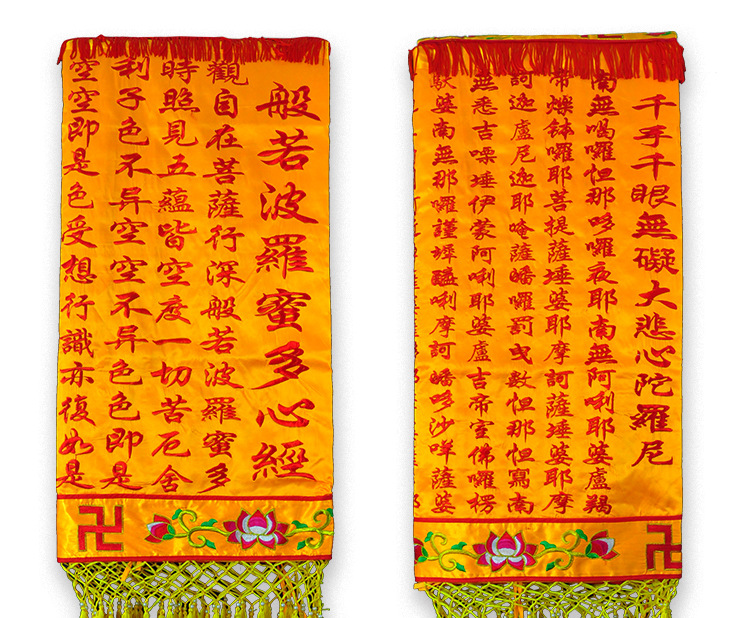 般若波羅蜜多心經
觀自在菩薩行深般若波羅蜜多
時照見五蘊皆空度一切苦厄舍
利子色不异空空不异色色即是
空空即是色受想行識亦復如是
千手千眼無礙大悲心陀羅尼
南無喝囉怛那哆囉夜耶南無阿唎耶婆盧羯
帝爍鉢囉耶菩提薩埵婆耶摩訶薩埵婆耶摩
訶迦盧尼迦耶唵薩皤囉罰曳數怛那怛寫南
無悉吉嘌埵伊蒙阿唎耶婆盧吉帝室佛囉楞
馱婆南無那囉謹墀醯唎摩訶皤哆沙咩薩婆